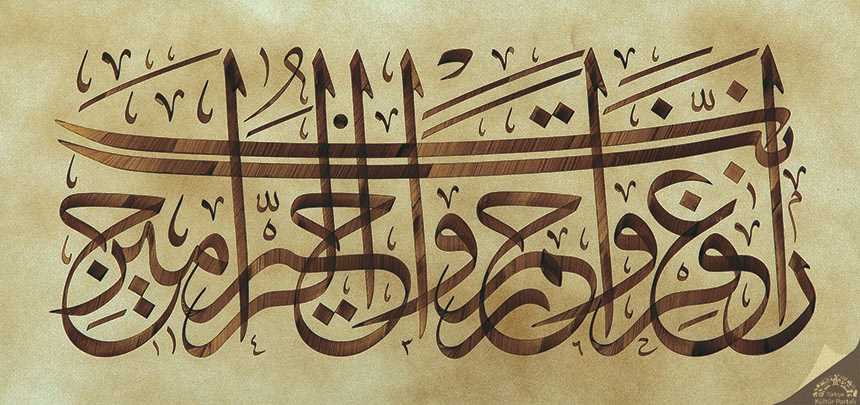 رب اغفر وارحم وأنت خير الراحمين
Türkiye
Kültür Portalı